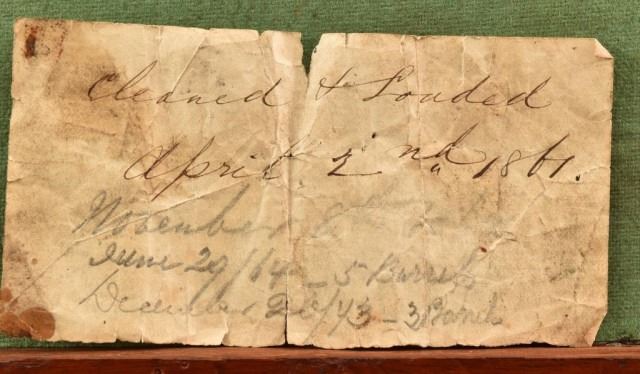 Cleaned & Loaded
April 2nd 1861.
November 8th
June 29/64 - 5 Barrels
December 20/73 - 3 Barrels